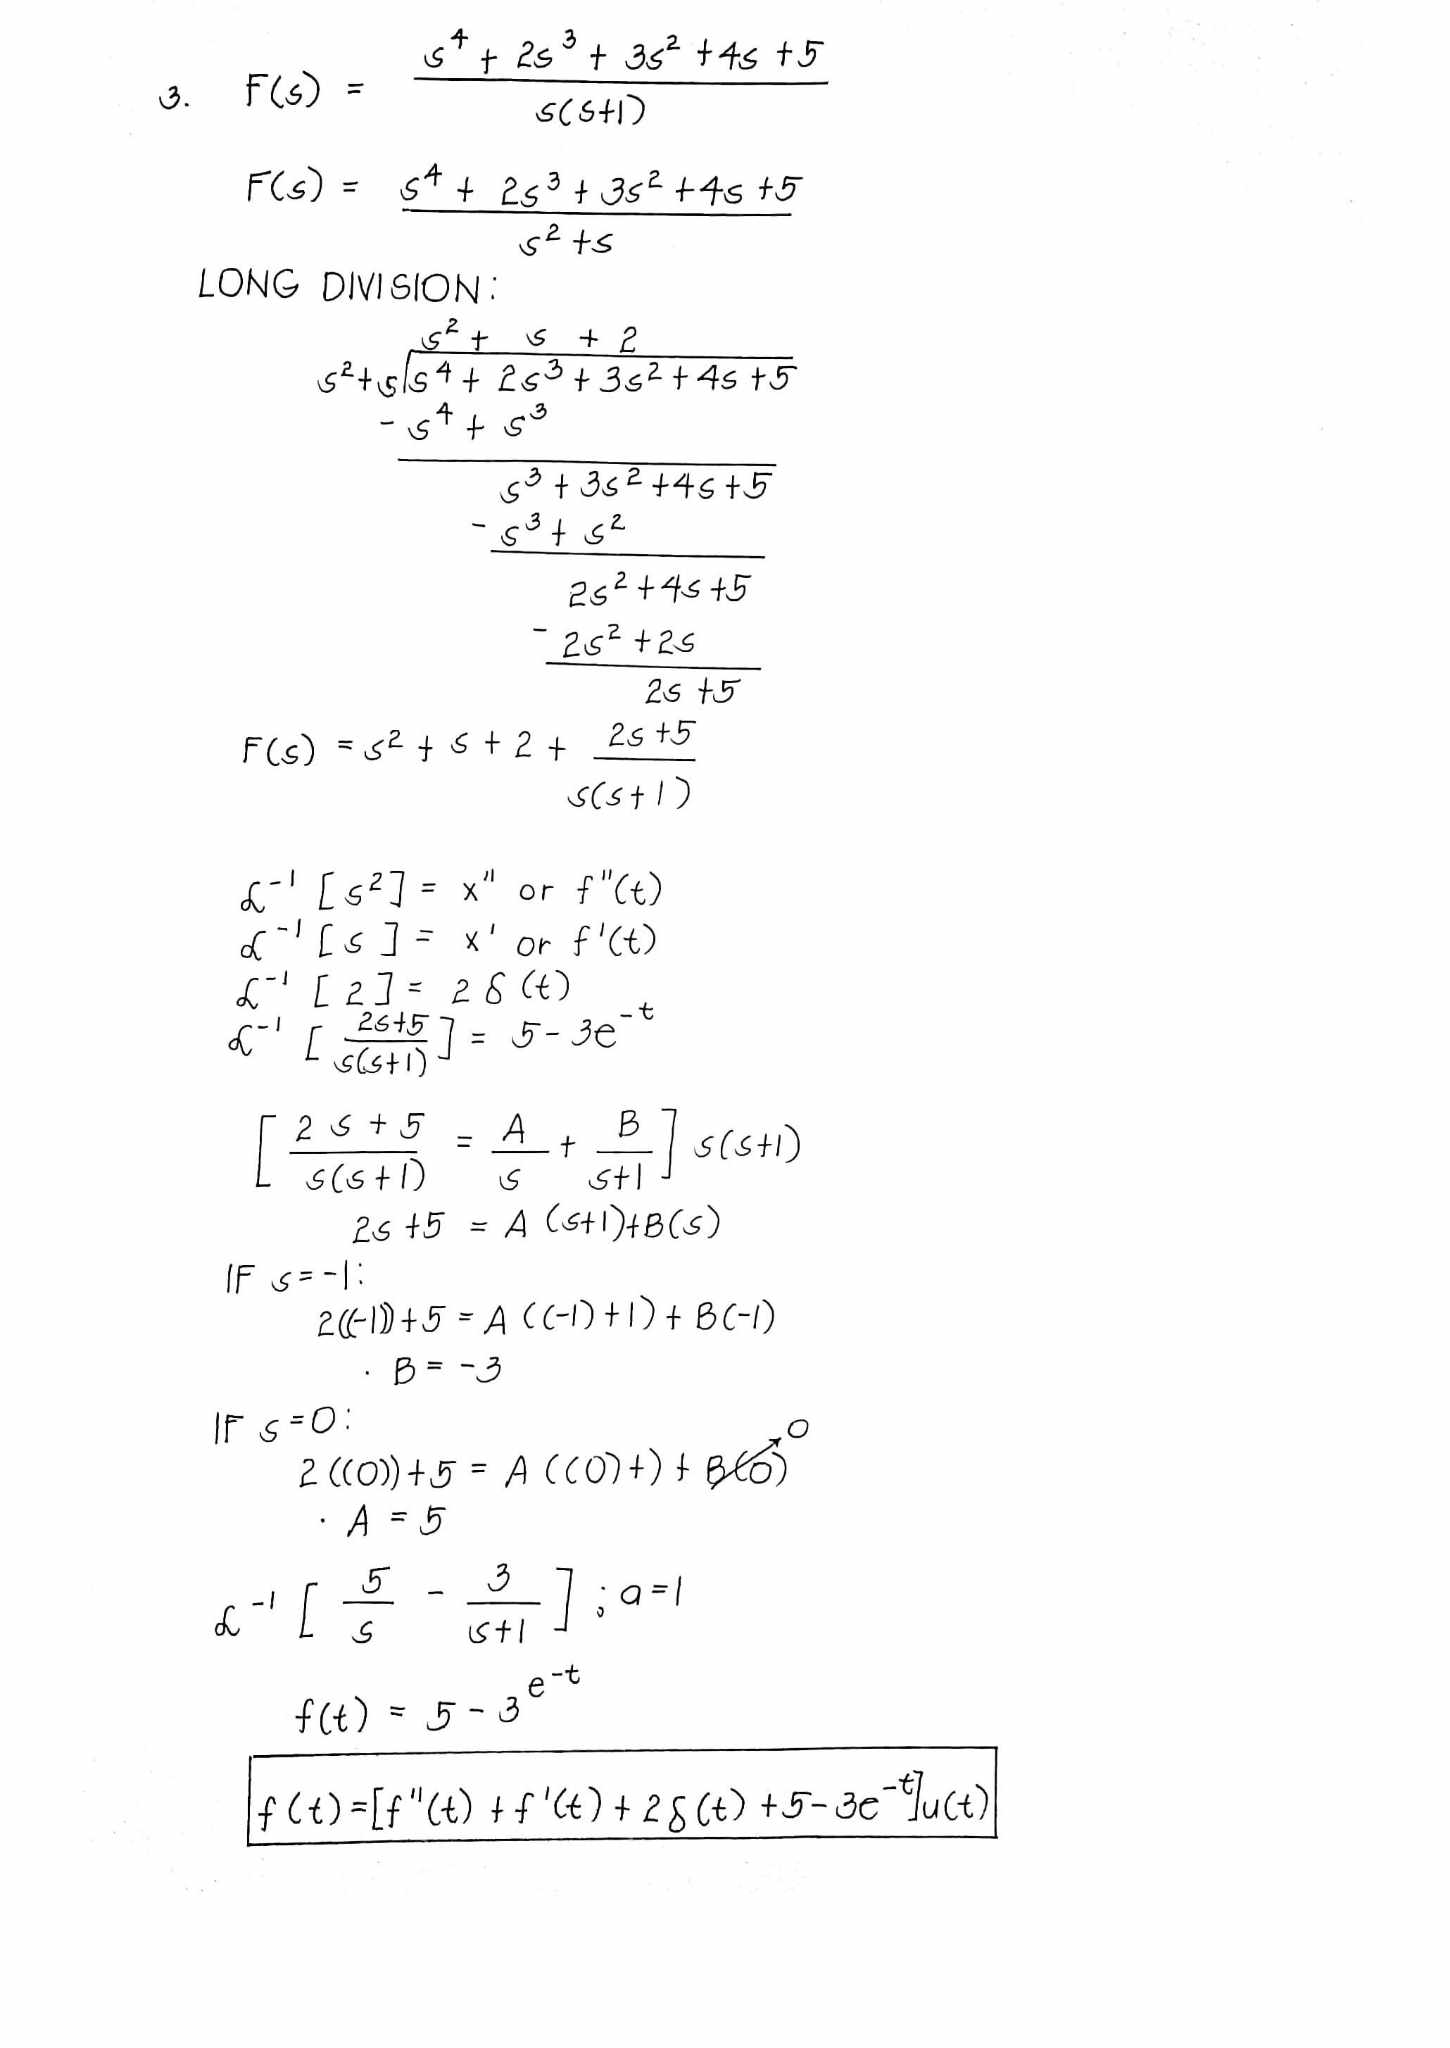 3. F(s) = s⁴ + 2s³ + 3s² +4s +5 / s(s+1)
F(s) = s⁴ + 2s³ + 3s² +4s +5 / s² +s
LONG DIVISION:
s² + s + 2
s²+s √ s⁴ + 2s³ + 3s² + 4s +5
- s⁴ + s³
s³ + 3s² +4s +5
- s³ + s²
2s² +4s +5
- 2s² +2s
2s +5
F(s) = s² + s + 2 + 2s +5 / s(s+1)
ℒ⁻¹ [s²] = x" or f"(t)
ℒ⁻¹ [s] = x' or f'(t)
ℒ⁻¹ [2] = 2 δ (t)
ℒ⁻¹ [ 2s+5 / s(s+1) ] = 5 - 3e⁻ᵗ
[ 2s + 5 / s(s+1) = A / s + B / s+1 ] s(s+1)
2s +5 = A (s+1)+B(s)
IF s=-1:
2((-1))+5 = A ((-1)+1) + B(-1)
. B = -3
IF s=0:
2((0))+5 = A ((0)+) + B(0) 0
. A = 5
ℒ⁻¹ [ 5 / s - 3 / s+1 ] ; a=1
f(t) = 5 - 3 e⁻ᵗ
f(t)=[f"(t) + f'(t) + 2δ(t) +5-3e⁻ᵗ]u(t)